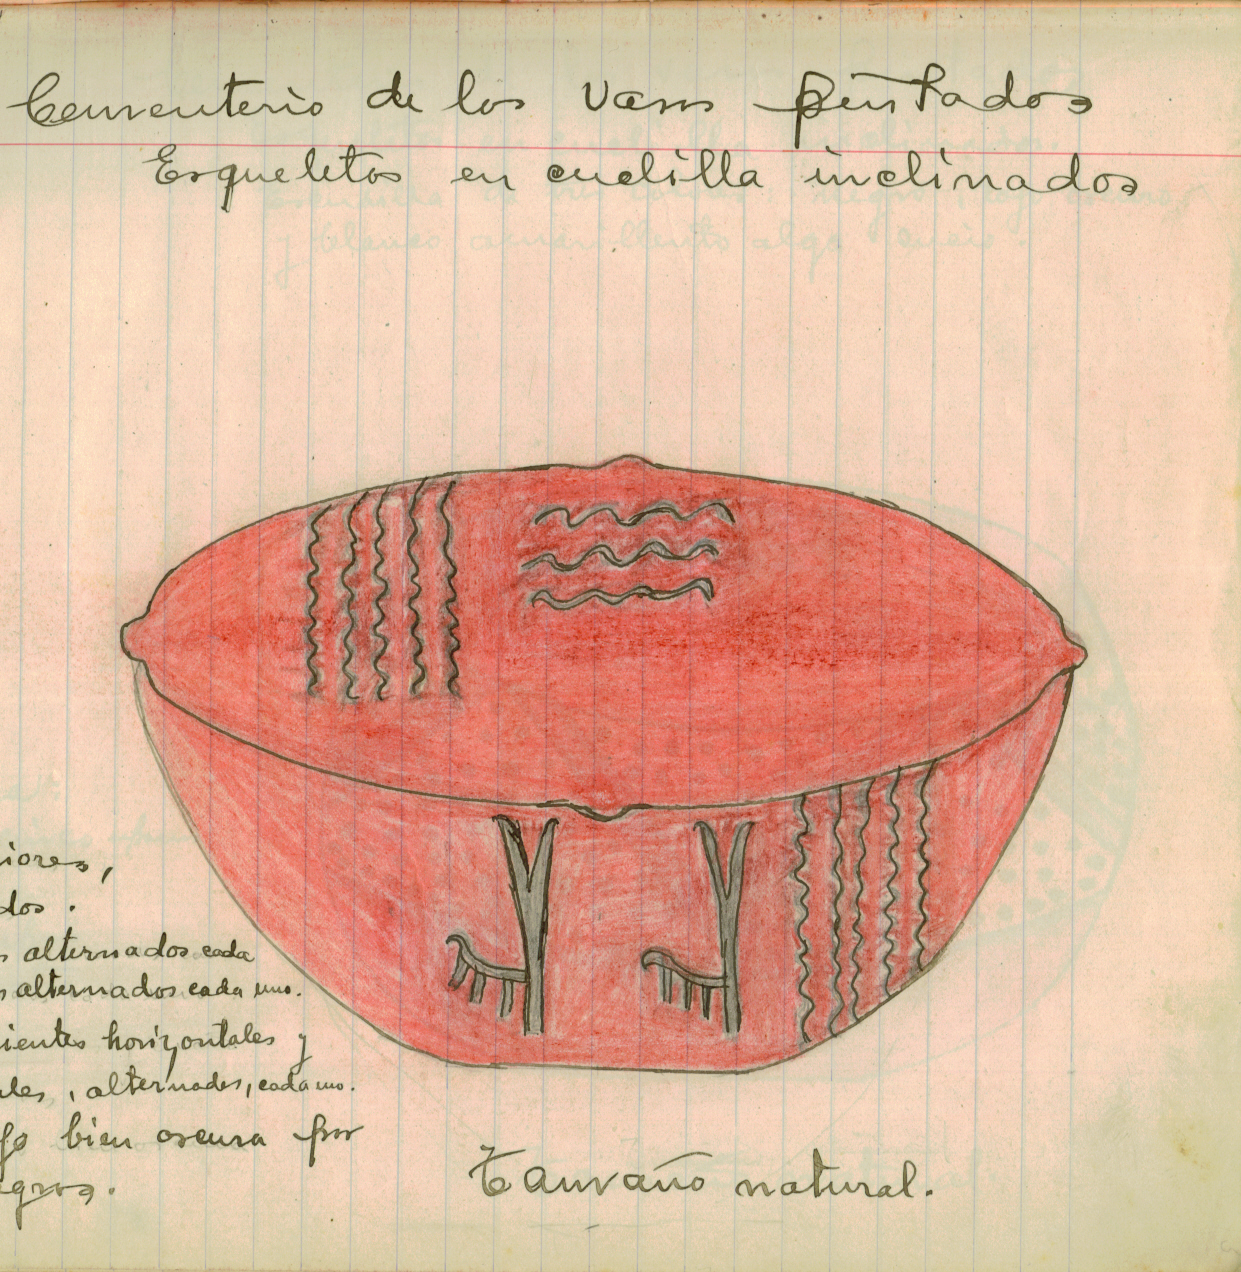 Cementerio de los Vasos pintados
Esqueletos en cuclilla inclinados
iores,
dos.
s alternados cada
s alternados cada uno.
ientes horizontales y
ales, alternados, cada uno.
jo bien oscura por
egros.
Tamaño natural.